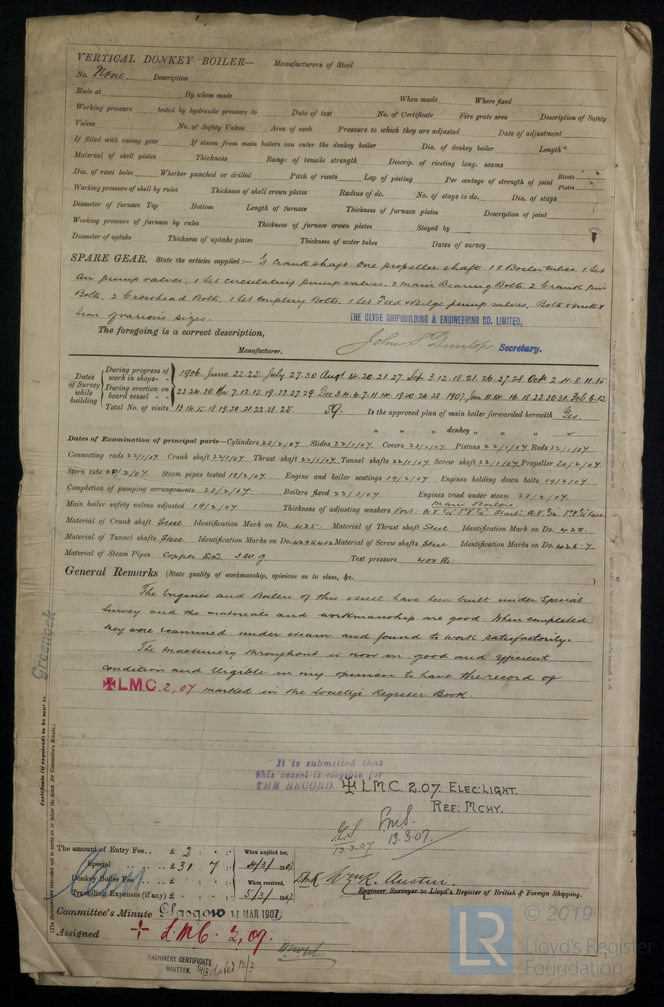 VERTICAL DONKEY BOILER— Manufacturers of Steel
No. None. Description
Made at By whom made When made Where fixed
Working pressure tested by hydraulic pressure to Date of test No. of Certificate Fire grate area Description of Safety
Valves No. of Safety Valves Area of each Pressure to which they are adjusted Date of adjustment
If fitted with easing gear If steam from main boilers can enter the donkey boiler Dia. of donkey boiler Length
Material of shell plates Thickness Range of tensile strength Descrip. of riveting long. seams
Dia. of rivet holes Whether punched or drilled Pitch of rivets Lap of plating Per centage of strength of joint Rivets Plates
Working pressure of shell by rules Thickness of shell crown plates Radius of do. No. of stays to do. Dia. of stays
Diameter of furnace Top Bottom Length of furnace Thickness of furnace plates Description of joint
Working pressure of furnace by rules Thickness of furnace crown plates Stayed by
Diameter of uptake Thickness of uptake plates Thickness of water tubes Dates of survey
SPARE GEAR. State the articles supplied:— Crank shaft One propeller shaft 18 Boiler tubes. 1 Set
Air pump valves, 1 Set circulating pump valves. 2 Main Bearing Bolts 2 Crank pin
Bolts, 2 Crosshead Bolts, 1 Set Coupling Bolts. 1 Set Feed & Bilge pump valves, Bolts & nuts &
Iron of various sizes.
THE CLYDE SHIPBUILDING & ENGINEERING CO. LIMITED,
The foregoing is a correct description,
John S. Dunlop Secretary.
Manufacturer.
Dates of Survey while building
During progress of work in shops - - 1906. June 22. 25. July 27. 30 Aug 1. 14. 20. 21. 27. Sep 3. 12. 18. 21. 26. 27. 28. Oct 2. 4. 8. 11. 15.
During erection on board vessel - - 23. 24. 30 Nov 7. 12. 15. 19. 23. 27. 29. Dec 3. 4. 6. 7. 11. 14. 19. 20. 26. 28. 1907. Jan 11. 14. 16. 18. 22. 30. 31. Feb 6. 12.
Total No. of visits 13. 14. 15. 18. 19. 20. 21. 22. 23. 25. 59. Is the approved plan of main boiler forwarded herewith Yes
" " " donkey " " "
Dates of Examination of principal parts—Cylinders 22/1/07 Slides 22/1/07 Covers 22/1/07 Pistons 22/1/07 Rods 22/1/07
Connecting rods 22/1/07 Crank shaft 22/1/07 Thrust shaft 22/1/07 Tunnel shafts 22/1/07 Screw shaft 22/1/07 Propeller 20/2/07
Stern tube 20/2/07 Steam pipes tested 18/2/07 Engine and boiler seatings 19/2/07 Engines holding down bolts 19/2/07
Completion of pumping arrangements 23/2/07. Boilers fixed 22/2/07 Engines tried under steam 23/2/07.
Main boiler safety valves adjusted 19/2/07 Thickness of adjusting washers
Main Boilers
Material of Crank shaft Steel Identification Mark on Do. 425. Material of Thrust shaft Steel Identification Mark on Do. 428.
Material of Tunnel shafts Steel Identification Marks on Do. Material of Screw shafts Steel Identification Marks on Do. 426-7
Material of Steam Pipes Copper Test pressure 400 lbs.
General Remarks (State quality of workmanship, opinions as to class, &c. )
The Engines and Boilers of this vessel have been built under Special
Survey and the materials and workmanship are good. When completed
they were examined under steam and found to work satisfactorily.
The machinery throughout is now in good and efficient
condition and eligible in my opinion to have the record of
✠LMC. 2, 07 marked in the Society's Register Book
It is submitted that
this vessel is eligible for
THE RECORD ✠ LMC. 2.07. ELEC: LIGHT.
REF: MCHY.
13.3.07
Greenock
Certificate (if required) to be sent to
The amount of Entry Fee . . £ 2 : : When applied for,
Special . . . . £ 31 : 7 : 4/3/1907
Donkey Boiler Fee . . . £ : : When received,
Travelling Expenses (if any) £ : : 5/3/1907
Wm R. Austin.
Engineer Surveyor to Lloyd's Register of British & Foreign Shipping.
Committee's Minute Glasgow 11 MAR 1907
Assigned + L.M.C. 2,07.
MACHINERY CERTIFICATE
WRITTEN. 12/3 dated 12/3
LR
© 2019
Lloyd's Register
Foundation